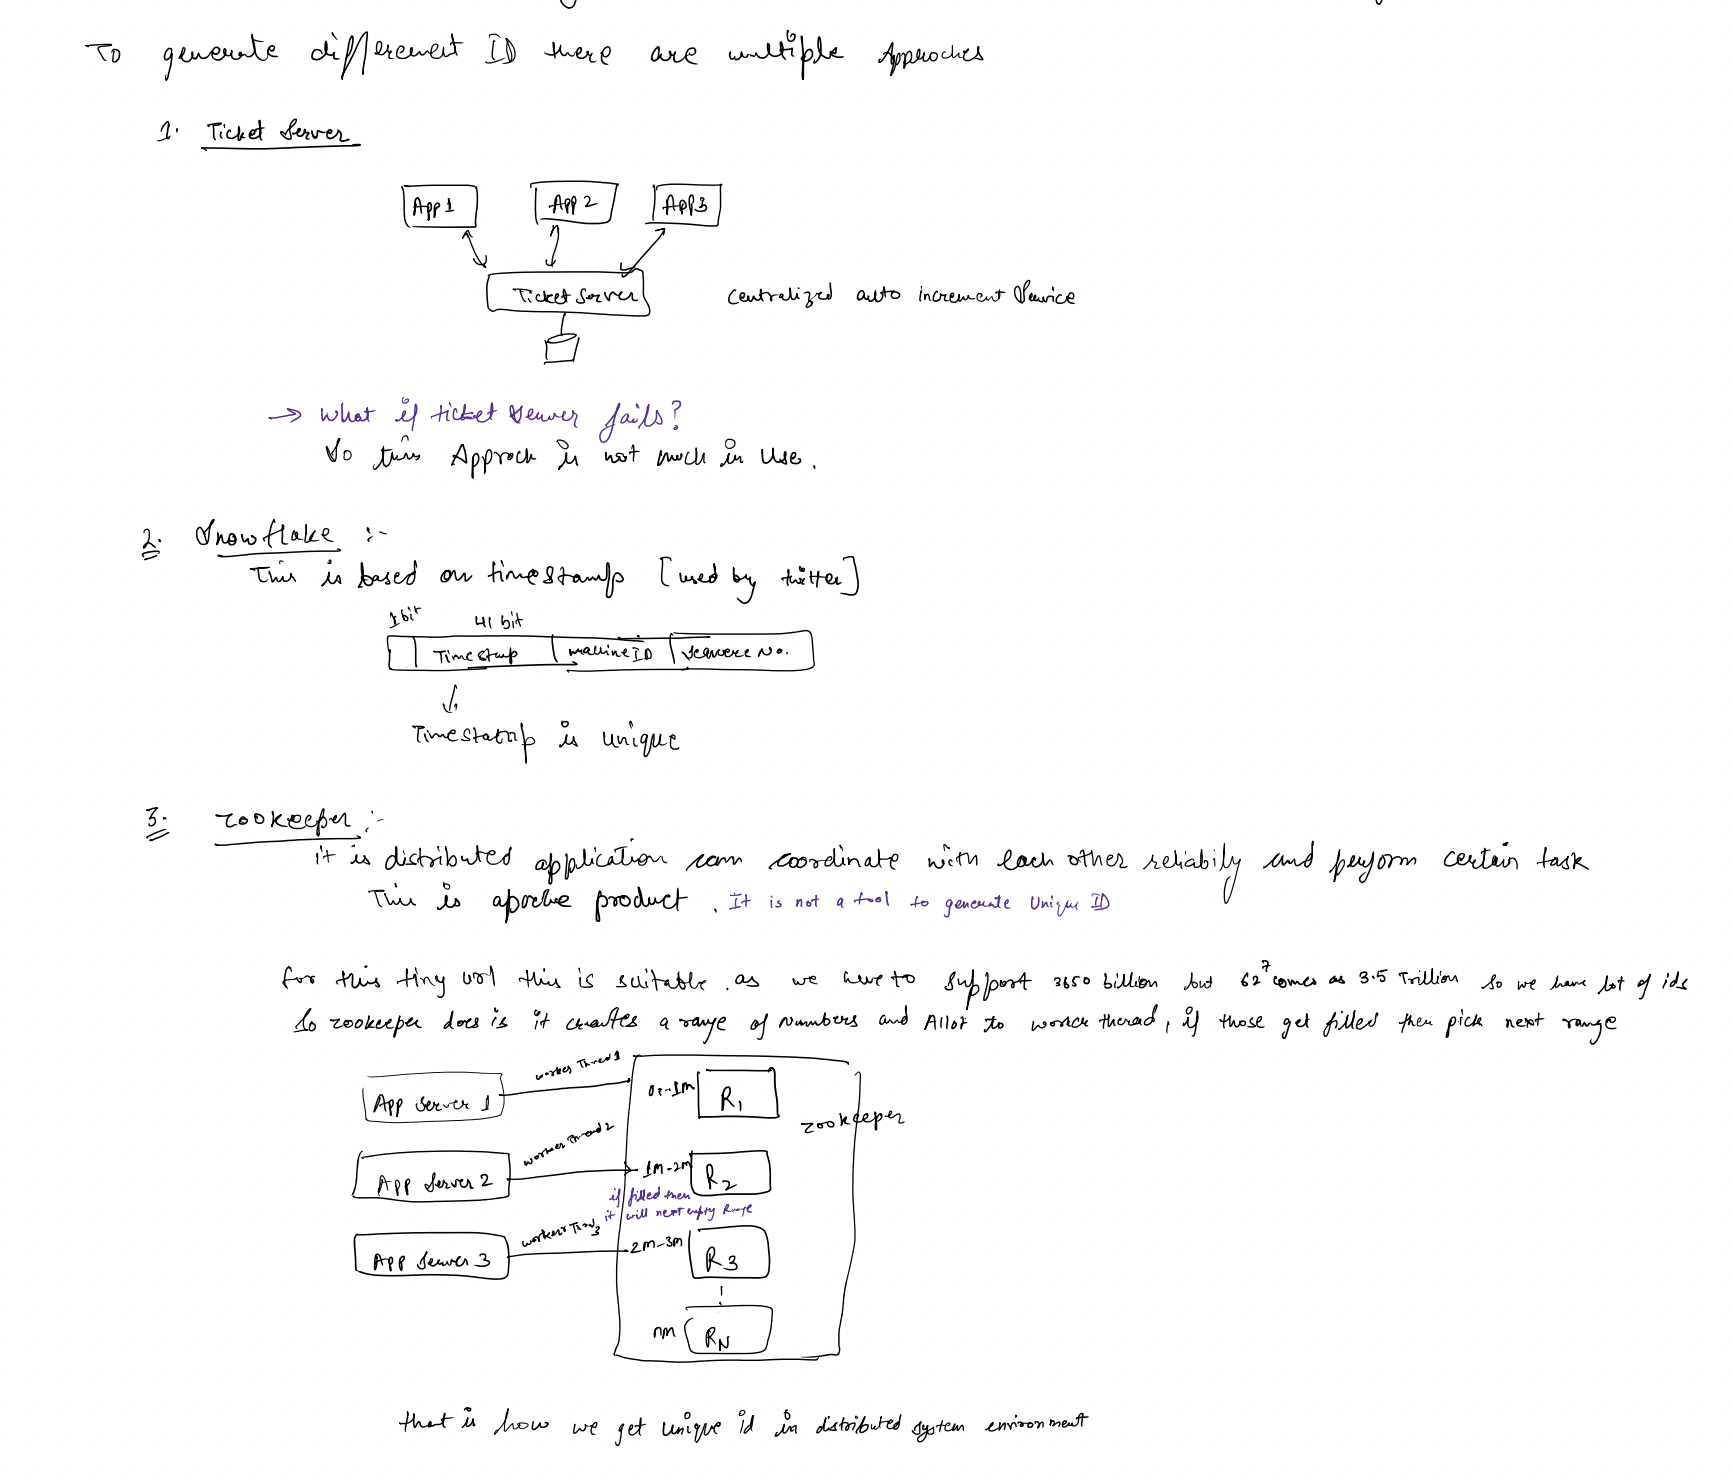 To generate differenent ID there are multiple Approches
1. Ticket Server
App 1
App 2
App 3
Ticket Server
centralized auto increment Service
→ what if ticket server fails?
So this Approch is not much in use.
2. Snowflake :-
This is based on timestamp [used by twitter]
1 bit
41 bit
Timestamp
machine ID
No.
Timestamp is unique
3. zookeeper :-
it is distributed application can coordinate with each other reliabily and perform certain task
This is apache product . It is not a tool to generate Unique ID
for this tiny url this is suitable . as we have to support 3650 billion but 62^7 comes as 3.5 Trillion so we have lot of ids
So zookeeper does is it creates a range of numbers and Allot to worker theread, if those get filled then pick next range
App Server 1
worker Thread 1
R1
zookeeper
App Server 2
worker Thread 2
1m-2m
R2
if filled then
it will next empty Range
App Server 3
worker
2m-3m
R3
nm
RN
that is how we get unique id in distributed system environment